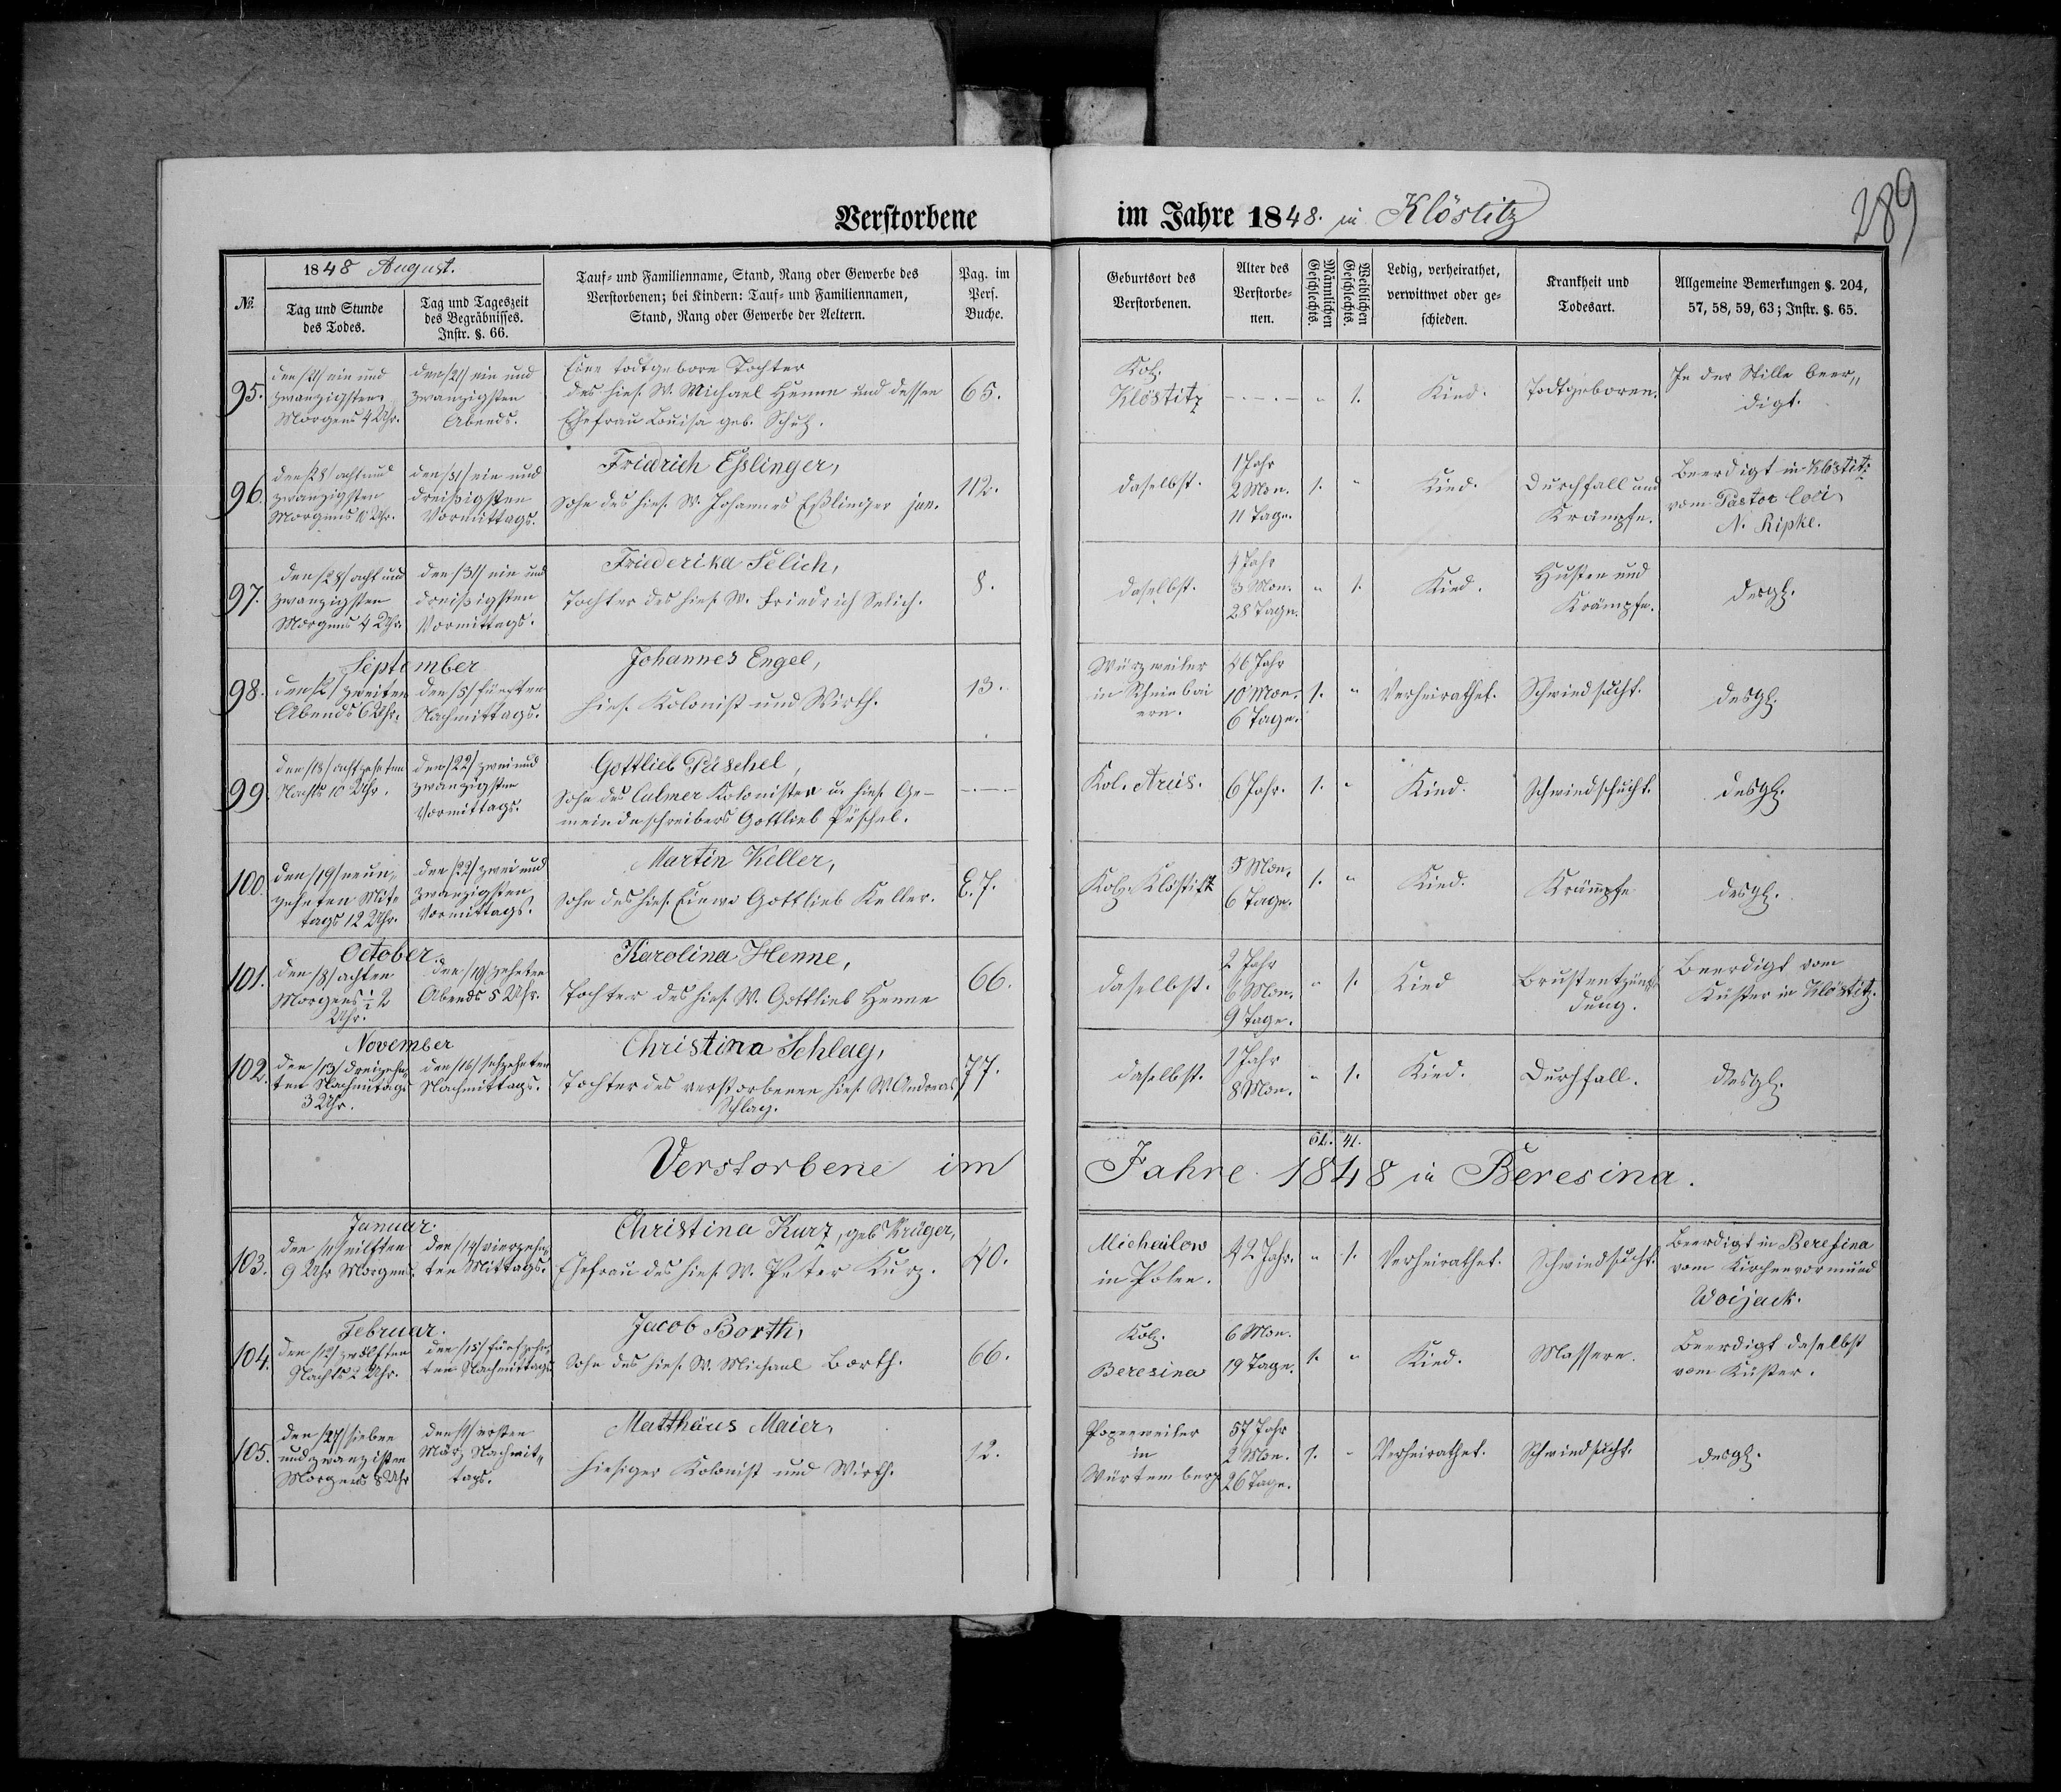 Verstorbene im Jahre 1848. in Klöstitz
289
1848 August.
№.
Tag und Stunde
des Todes.
Tag und Tageszeit
des Begräbnisses.
Instr. §. 66.
Tauf- und Familienname, Stand, Rang oder Gewerbe des
Verstorbenen; bei Kindern: Tauf- und Familiennamen,
Stand, Rang oder Gewerbe der Aeltern.
Pag. im
Pers.
Buche.
Geburtsort des
Verstorbenen.
Alter des
Verstorbe-
nen.
Männlichen
Geschlechts.
Weiblichen
Geschlechts.
Ledig, verheirathet,
verwittwet oder ge-
schieden.
Krankheit und
Todesart.
Allgemeine Bemerkungen §. 204,
57, 58, 59, 63; Instr. §. 65.
95.
den /21/ ein und
zwanzigsten
Morgens 4 Uhr.
den /21/ ein und
zwanzigsten
Abends.
Eine todtgeborne Tochter
des hies. W. Michael Henne und dessen
Ehefrau Louisa geb. Schulz.
65.
Kol.
Klöstitz
1.
Kind.
Todtgeboren.
In der Stille beer„
digt.
96.
den /28/ acht und
zwanzigsten
Morgens Uhr.
den /31/ ein und
dreißigsten
Vormittags.
Friedrich Eßlinger,
Sohn des hies. W. Johannes Eßlinger jun.
112.
daselbst.
1 Jahr
2 Mon.
11 Tage.
1.
"
Kind.
Durchfall und
Krämpfe.
Beerdigt in Klöstitz
vom Pastor Coll.
N. Ripke.
97.
den /28/ acht und
zwanzigsten
Morgens 4 Uhr.
den /31/ ein und
dreißigsten
Vormittags.
Friederika Selich,
Tochter des hies. W. Friedrich Selich.
8.
daselbst.
Jahr
3 Mon.
28 Tage.
"
1.
Kind.
Husten und
Krämpfe.
desgl.
September
98.
den /2/ zweiten
Abends 6 Uhr.
den /5/ fünften
Nachmittags.
Johannes Engel,
hies. Kolonist und Wirth.
13.
Würzweiler
in Rheinbai
ern.
46 Jahr
10 Mon.
6 Tage.
1.
"
Verheirathet.
Schwindsucht.
desgl.
99.
den /18/ achtzehnten
Nachts 10 Uhr.
den /22/ zwei und
zwanzigsten
Vormittags.
Gottlieb Püschel,
Sohn des Culmer Kolonisten u. hies. Ge-
meindeschreibers Gottlieb Püschel.
Kol. Arcis.
6 Jahr.
1.
"
Kind.
Schwindsucht.
desgl.
100.
den /19/ neun„
zehnten Mit„
tags 12 Uhr.
den /22/ zwei und
zwanzigsten
Vormittags.
Martin Keller,
Sohn des hies. Einw. Gottlieb Keller.
E.7.
Kol. Klöstitz
5 Mon.
6 Tage.
1.
"
Kind.
Krämpfe
desgl.
October.
101.
den /8/ achten
Morgens ½ 2
Uhr.
den /10/ zehnten
Abends 5 Uhr.
Karolina Henne,
Tochter des hies. W. Gottlieb Henne
66.
daselbst.
2 Jahr
6 Mon.
9 Tage.
"
1.
Kind
Brustentzün„
dung.
Beerdigt vom
Küster in Klöstitz.
November
102.
den /13/ dreizehn„
ten Nachmittags
3 Uhr.
den /16/ sechzehnten
Nachmittags.
Christina Schlag,
Tochter des verstorbenen hies. W. Andreas
Schlag.
77.
daselbst.
1 Jahr
8 Mon.
"
1.
Kind.
Durchfall.
desgl.
41.
Verstorbene im Jahre 1848 in Beresina.
Januar.
103.
den /11/ eilften
9 Uhr Morgens.
den /14/ vierzehn„
ten Mittags.
Christina Kurz, geb. Krüger,
Ehefrau des hies. W. Peter Kurz.
40.
Michailow
in Polen.
42 Jahr.
"
1.
Verheirathet.
Schwindsucht.
Beerdigt in Beresina
vom Kirchenvormund
Woijack.
Februar.
104.
den /12/ zwölften
Nachts 2 Uhr.
den /15/ fünfzehn„
ten Nachmittags
Jacob Borth,
Sohn des hies. W. Michael Borth.
66.
Kol.
Beresina
6 Mon.
19 Tage.
1.
"
Kind.
Massern.
Beerdigt daselbst
vom Küster.
105.
den /27/ sieben
und zwanzigsten
Morgens 8 Uhr
den /1/ ersten
März Nachmit„
tags.
Matthäus Maier,
hiesiger Kolonist und Wirth.
12.
Poppenweiler
in
Würtemberg
57 Jahr
2 Mon.
26 Tage.
1.
"
Verheirathet.
Schwindsucht.
desgl.